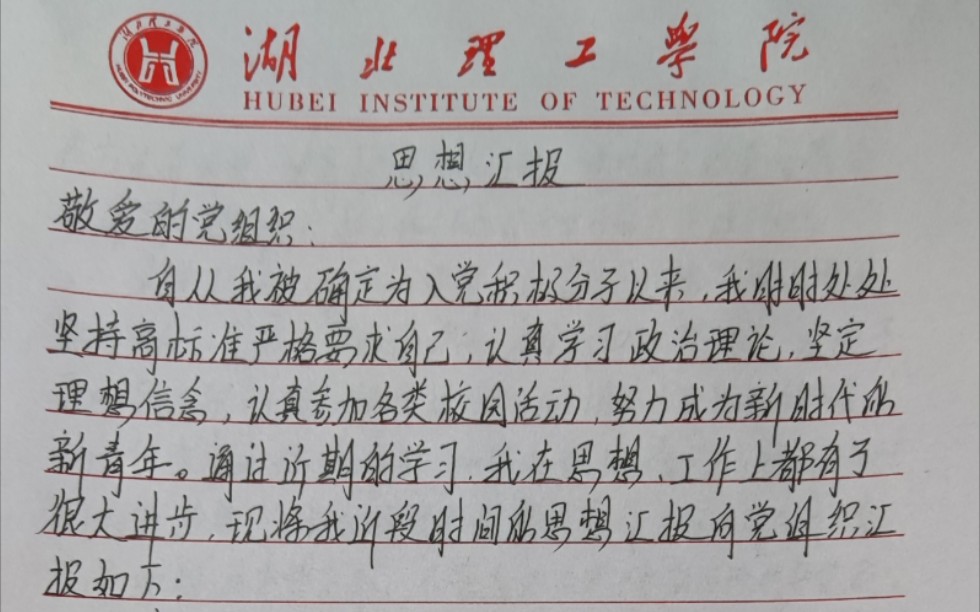 湖北理工学院
HUBEI INSTITUTE OF TECHNOLOGY
思想汇报
敬爱的党组织:
自从我被确定为入党积极分子以来,我时时处处
坚持高标准严格要求自己,认真学习政治理论,坚定
理想信念,认真参加各类校园活动,努力成为新时代的
新青年。通过近期的学习,我在思想、工作上都有了
很大进步,现将我近段时间的思想汇报向党组织汇
报如下: